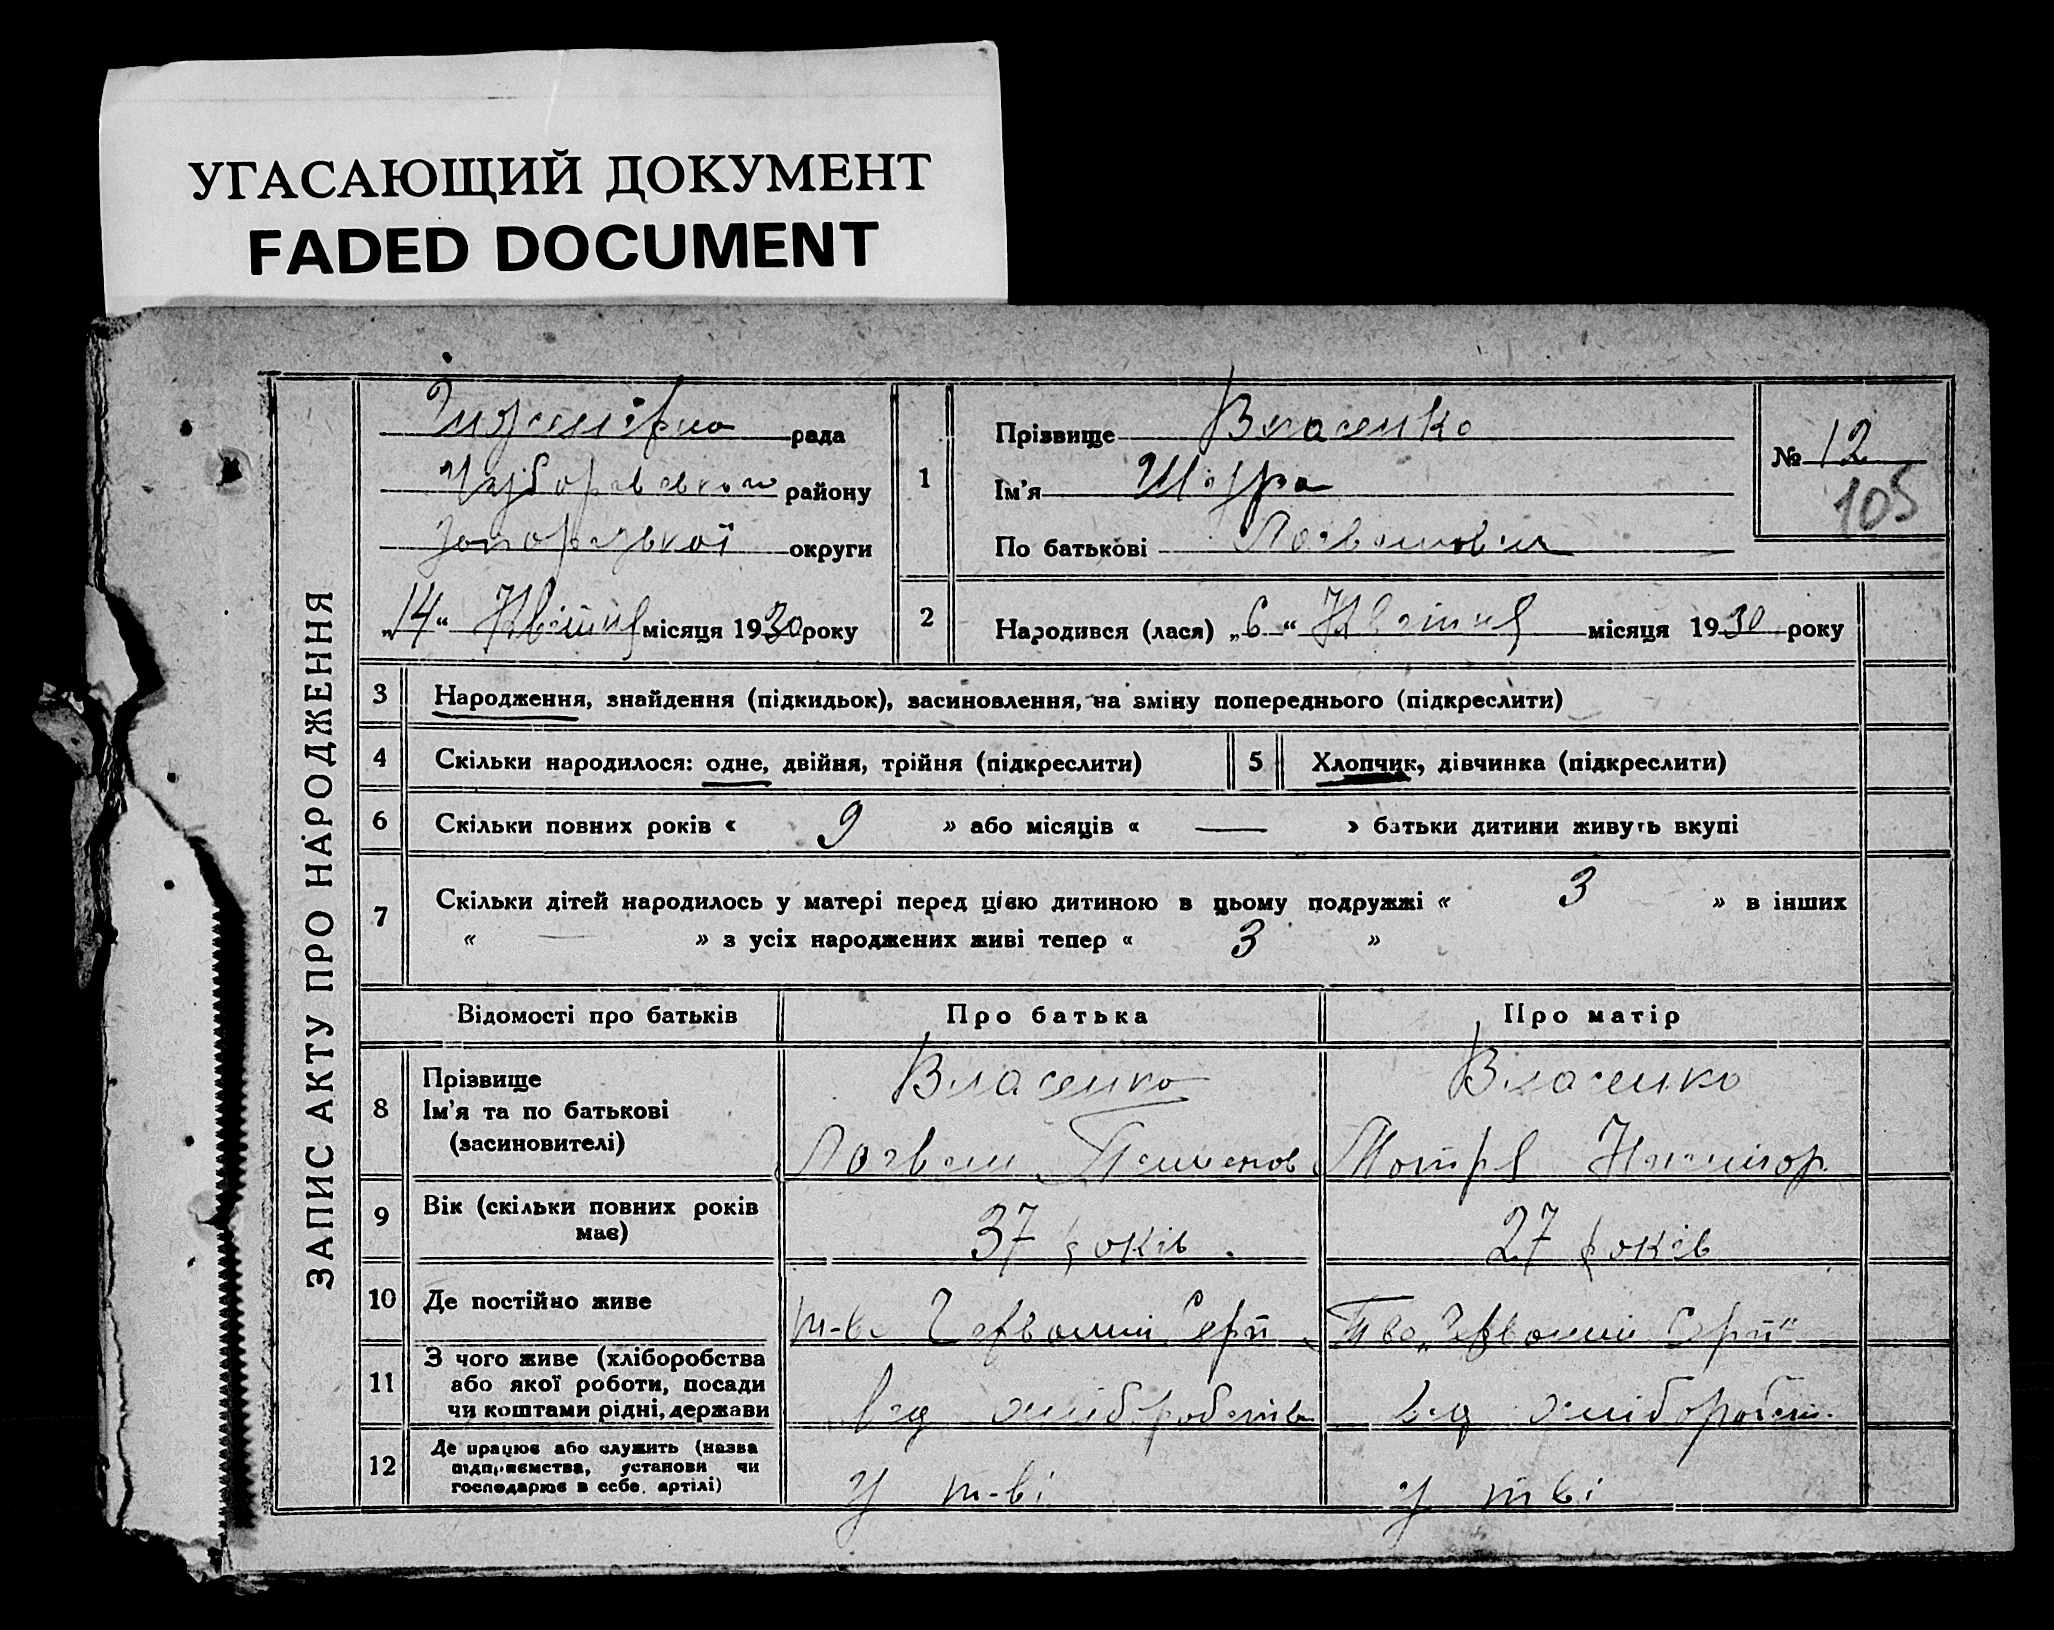 УГАСАЮЩИЙ ДОКУМЕНТ
FADED DOCUMENT
ЗАПИС АКТУ ПРО НАРОДЖЕННЯ
рада
району
округи
„14“ Квітня місяця 1930 року
1
Прізвище Власенко
Ім'я
По батькові
№ 12
105
2
Народився (лася) „6“ Квітня місяця 1930 року
3 Народження, знайдення (підкидьок), засиновлення, на зміну попереднього (підкреслити)
4 Скільки народилося: одне, двійня, трійня (підкреслити)
5 Хлопчик, дівчинка (підкреслити)
6 Скільки повних років « 9 » або місяців « — » батьки дитини живуть вкупі
7 Скільки дітей народилось у матері перед цією дитиною в цьому подружжі « 3 » в інших
« — » з усіх народжених живі тепер « 3 »
Відомості про батьків Про батька Про матір
8 Прізвище
Ім'я та по батькові
(засиновителі)
Власенко
Власенко
Мотря
9 Вік (скільки повних років
має)
37 років
27 років
10 Де постійно живе
т-во Червоний Серп
Тво „Червоний Серп“
11 З чого живе (хліборобства
або якої роботи, посади
чи коштами рідні, держави
від хліборобства
від хлібороб
12 Де працює або служить (назва
підприємства, установи чи
господарює в себе, артілі)
У т-ві
У тві